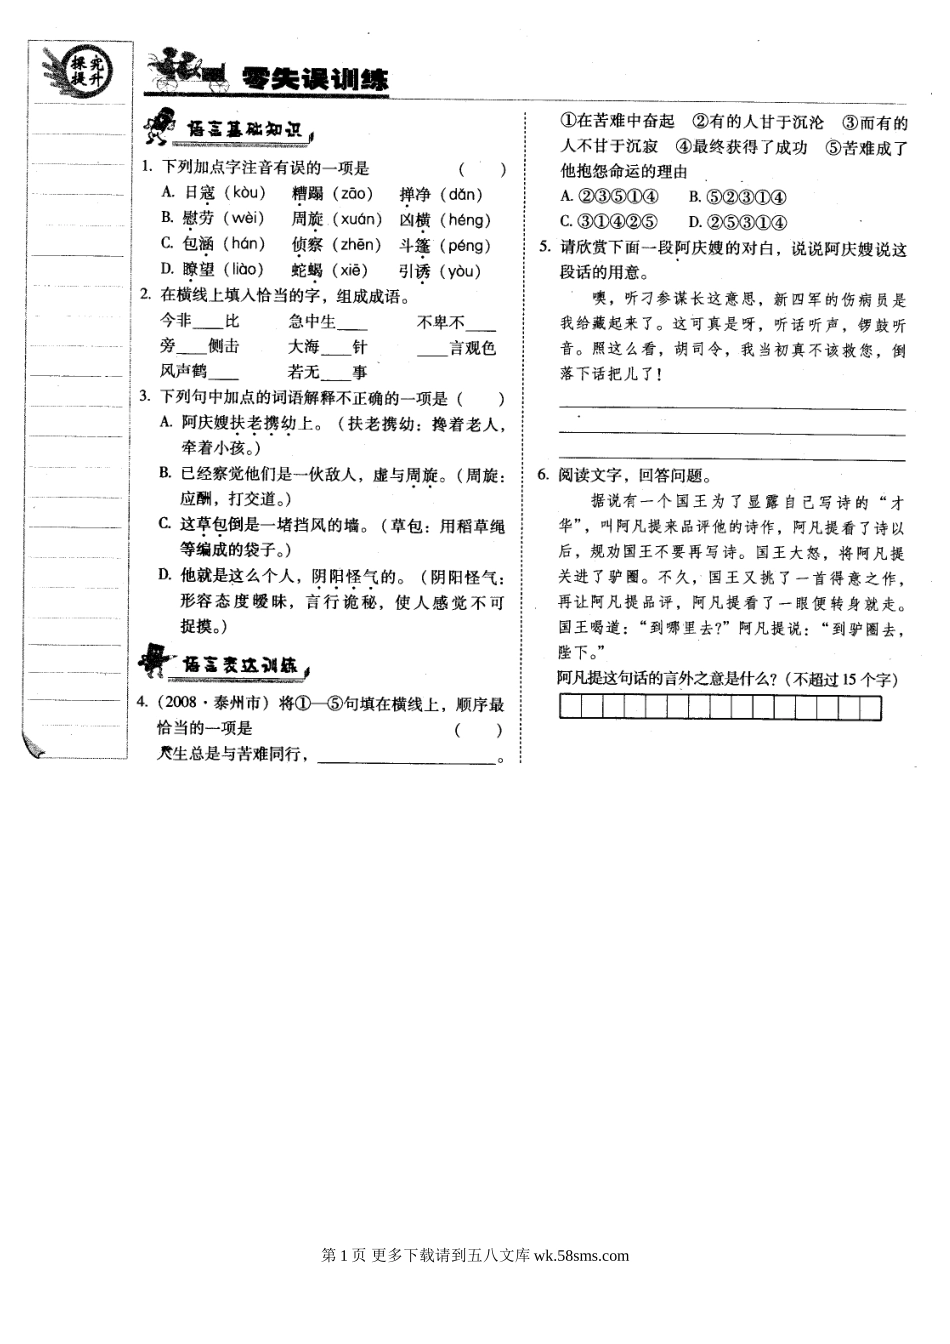 探究
提升
零失误训练
语言基础知识
1. 下列加点字注音有误的一项是 (　　)
A. 日寇（kòu） 糟蹋（zāo） 掸净（dǎn）
B. 慰劳（wèi） 周旋（xuán） 凶横（héng）
C. 包涵（hán） 侦察（zhēn） 斗篷（péng）
D. 瞭望（liào） 蛇蝎（xiē） 引诱（yòu）
2. 在横线上填入恰当的字，组成成语。
今非___比 急中生___ 不卑不___
旁___侧击 大海___针 ___言观色
风声鹤___ 若无___事
3. 下列句中加点的词语解释不正确的一项是 (　　)
A. 阿庆嫂扶老携幼上。（扶老携幼：搀着老人，
牵着小孩。）
B. 已经察觉他们是一伙敌人，虚与周旋。（周旋：
应酬，打交道。）
C. 这草包倒是一堵挡风的墙。（草包：用稻草绳
等编成的袋子。）
D. 他就是这么个人，阴阳怪气的。（阴阳怪气：
形容态度暧昧，言行诡秘，使人感觉不可
捉摸。）
语言表达训练
4. (2008·泰州市）将①—⑤句填在横线上，顺序最
恰当的一项是 (　　)
人生总是与苦难同行，____________________。
①在苦难中奋起 ②有的人甘于沉沦 ③而有的
人不甘于沉寂 ④最终获得了成功 ⑤苦难成了
他抱怨命运的理由
A. ②③⑤①④ B. ⑤②③①④
C. ③①④②⑤ D. ②⑤③①④
5. 请欣赏下面一段阿庆嫂的对白，说说阿庆嫂说这
段话的用意。
噢，听刁参谋长这意思，新四军的伤病员是
我给藏起来了。这可真是呀，听话听声，锣鼓听
音。照这么看，胡司令，我当初真不该救您，倒
落下话把儿了！
6. 阅读文字，回答问题。
据说有一个国王为了显露自己写诗的“才
华”，叫阿凡提来品评他的诗作，阿凡提看了诗以
后，规劝国王不要再写诗。国王大怒，将阿凡提
关进了驴圈。不久，国王又挑了一首得意之作，
再让阿凡提品评，阿凡提看了一眼便转身就走。
国王喝道：“到哪里去?”阿凡提说：“到驴圈去，
陛下。”
阿凡提这句话的言外之意是什么?（不超过15个字）
第 1 页 更多下载请到五八文库 wk.58sms.com